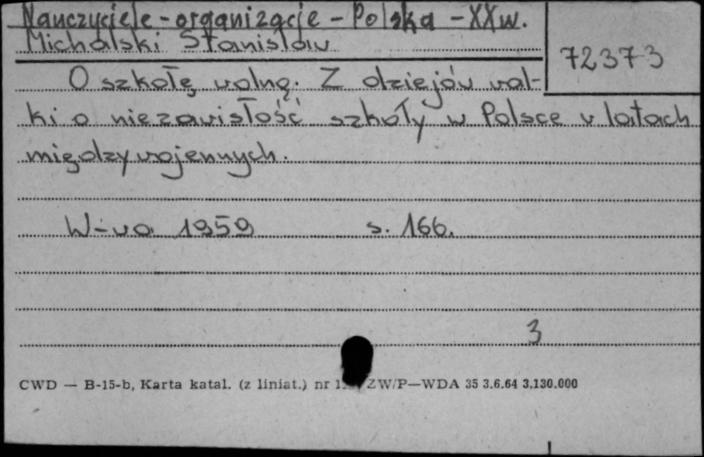 Nauczyciele - organizacje - Polska - XX w.
Michalski Stanisław
72373
O szkołę wolną. Z dziejów wal-
ki o niezawisłość szkoły w Polsce w latach
międzywojennych.
W-wa 1959 s. 166.
3
CWD — B-15-b, Karta katal. (z liniat.) nr ZW/P—WDA 35 3.6.64 3,130.000